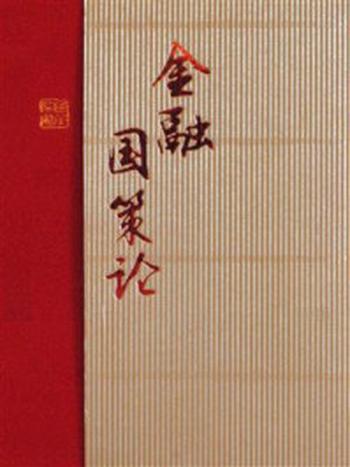 金融
国策论